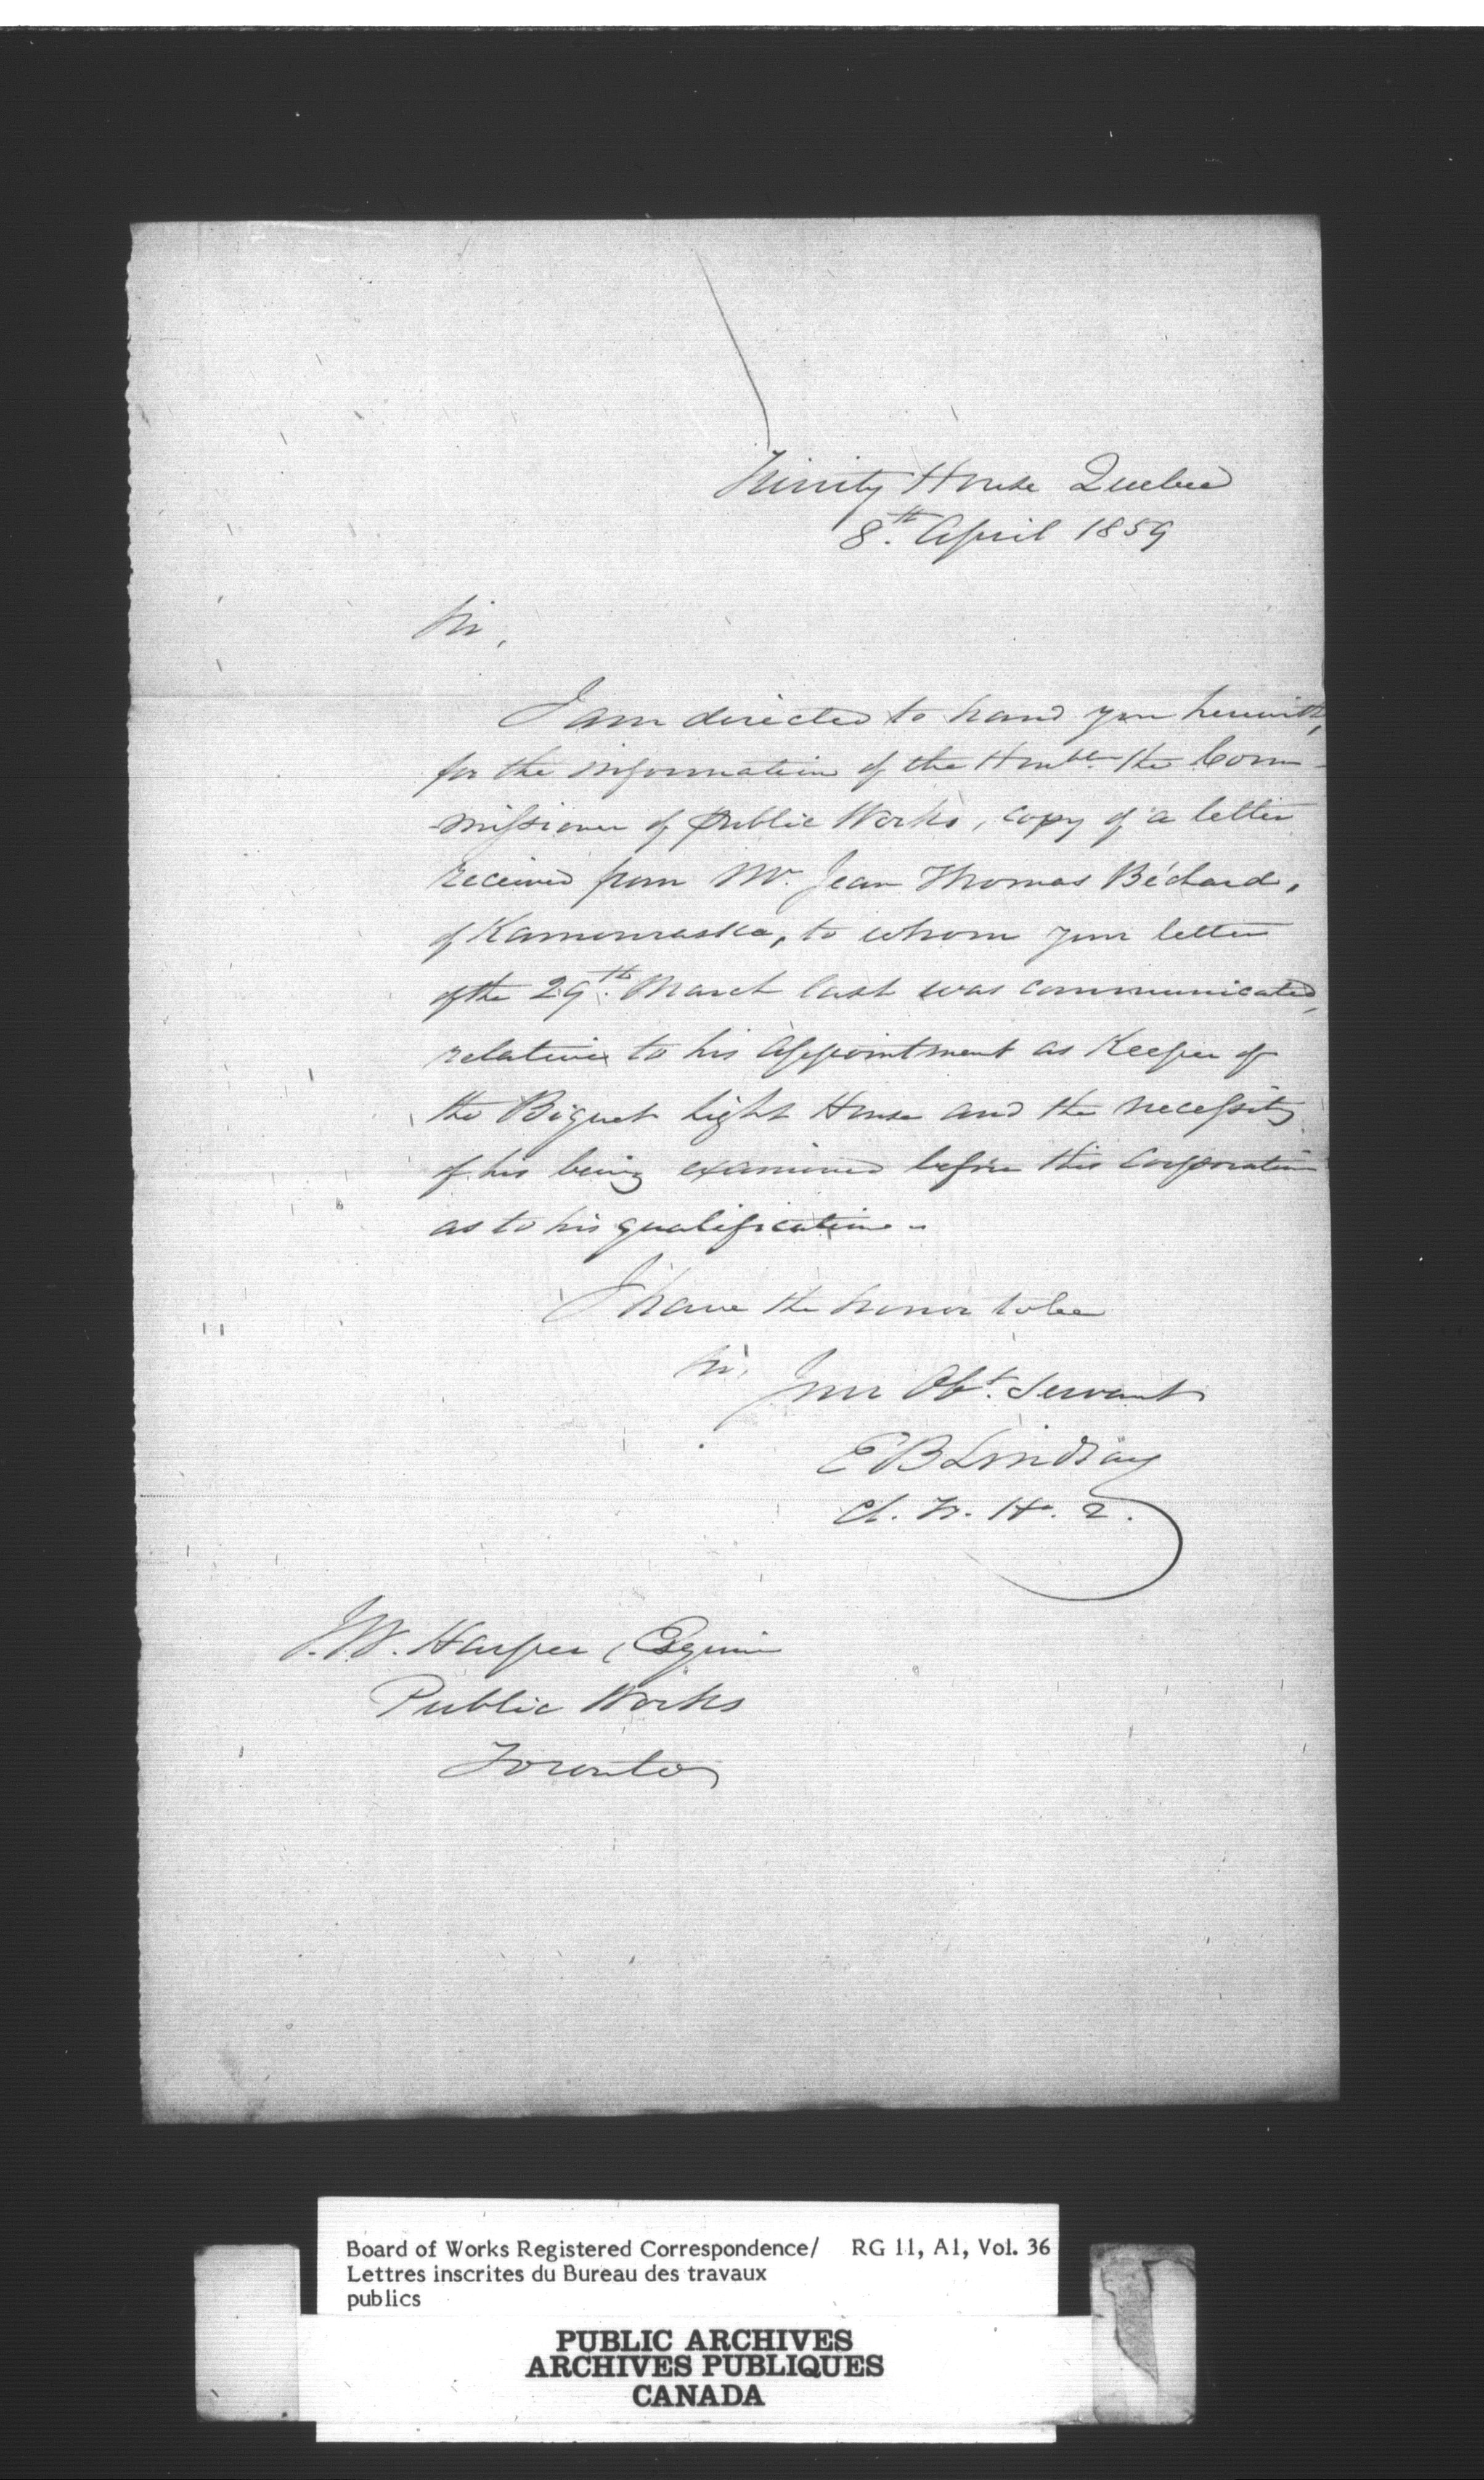 Trinity House Quebec
8th. April 1859
Sir,
I am directed to hand you herewith,
for the information of the Honble. the Com-
-missioner of Public Works, copy of a letter
received from Mr. Jean Thomas Béchard,
of Kamouraska, to whom your letter
of the 29th. March last was communicated,
relative to his appointment as Keeper of
the Biquet Light House and the necessity
of his being examined before this Corporation
as to his qualifications.
I have the honor to be
Sir,
Your Obt. Servant
E B Lindsay
Cl. T. H. Q.
J. W. Harper, Esquire
Public Works
Toronto
Board of Works Registered Correspondence/ RG 11, A1, Vol. 36
Lettres inscrites du Bureau des travaux
publics
PUBLIC ARCHIVES
ARCHIVES PUBLIQUES
CANADA